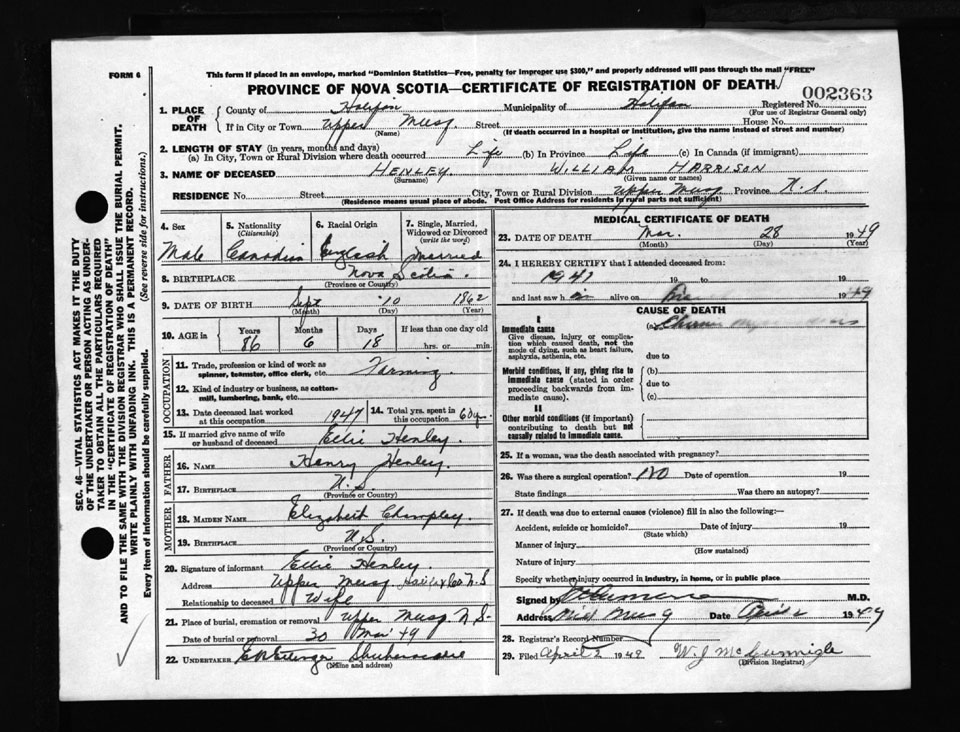 FORM 6
This form if placed in an envelope, marked "Dominion Statistics—Free, penalty for improper use $300," and properly addressed will pass through the mail "FREE"
PROVINCE OF NOVA SCOTIA—CERTIFICATE OF REGISTRATION OF DEATH 002363
SEC. 46—VITAL STATISTICS ACT MAKES IT THE DUTY
OF THE UNDERTAKER OR PERSON ACTING AS UNDER-
TAKER TO OBTAIN ALL THE PARTICULARS REQUIRED
IN THE "CERTIFICATE OF REGISTRATION OF DEATH"
AND TO FILE THE SAME WITH THE DIVISION REGISTRAR WHO SHALL ISSUE THE BURIAL PERMIT.
WRITE PLAINLY WITH UNFADING INK. THIS IS A PERMANENT RECORD.
Every item of information should be carefully supplied. (See reverse side for instructions.)
1. PLACE OF DEATH County of Halifax Municipality of Halifax Registered No.
(For use of Registrar General only)
If in City or Town Upper Musq. Street House No.
(Name) (If death occurred in a hospital or institution, give the name instead of street and number)
2. LENGTH OF STAY (in years, months and days)
(a) In City, Town or Rural Division where death occurred Life (b) In Province Life (c) In Canada (if immigrant)
3. NAME OF DECEASED HENLEY. WILLIAM HARRISON
(Surname) (Given name or names)
RESIDENCE No. Street City, Town or Rural Division Upper Musq Province N.S.
(Residence means usual place of abode. Post Office Address for residents in rural parts not sufficient)
4. Sex 5. Nationality (Citizenship) 6. Racial Origin 7. Single, Married, Widowed or Divorced (write the word)
Male Canadian English Married
8. BIRTHPLACE Nova Scotia.
(Province or Country)
9. DATE OF BIRTH Sept 10 1862
(Month) (Day) (Year)
10. AGE in Years Months Days If less than one day old
86 6 18 hrs. or min.
OCCUPATION
11. Trade, profession or kind of work as spinner, teamster, office clerk, etc. Farming.
12. Kind of industry or business, as cotton-mill, lumbering, bank, etc.
13. Date deceased last worked at this occupation 1947 14. Total yrs. spent in this occupation 60 y.
15. If married give name of wife or husband of deceased Ellie Henley.
FATHER
16. NAME Henry Henley.
17. BIRTHPLACE N.S.
(Province or Country)
MOTHER
18. MAIDEN NAME Elizabeth
19. BIRTHPLACE N.S.
(Province or Country)
20. Signature of informant Ellie Henley.
Address Upper Musq Halifax Co N.S
Relationship to deceased Wife
21. Place of burial, cremation or removal Upper Musq N S-
Date of burial or removal 30 Mar 49
22. UNDERTAKER Shubenacadie
(Name and address)
MEDICAL CERTIFICATE OF DEATH
23. DATE OF DEATH Mar. 28 1949
(Month) (Day) (Year)
24. I HEREBY CERTIFY that I attended deceased from:
1947 19 to 19
and last saw h alive on 1949
CAUSE OF DEATH
I
Immediate cause (a)
Give disease, injury or complica-
tion which caused death, not the
mode of dying, such as heart failure,
asphyxia, asthenia, etc. due to
Morbid conditions, if any, giving rise to (b)
immediate cause (stated in order due to
proceeding backwards from im-
mediate cause). (c)
II
Other morbid conditions (if important)
contributing to death but not
causally related to immediate cause.
25. If a woman, was the death associated with pregnancy?
26. Was there a surgical operation? NO Date of operation 19
State findings Was there an autopsy?
27. If death was due to external causes (violence) fill in also the following:—
Accident, suicide or homicide? Date of injury 19
(State which)
Manner of injury
(How sustained)
Nature of injury
Specify whether injury occurred in industry, in home, or in public place
Signed by M.D.
Address Mid Musq Date April 2 1949
28. Registrar's Record Number
29. Filed April 2 1949 W. J McCunnigle
(Division Registrar)